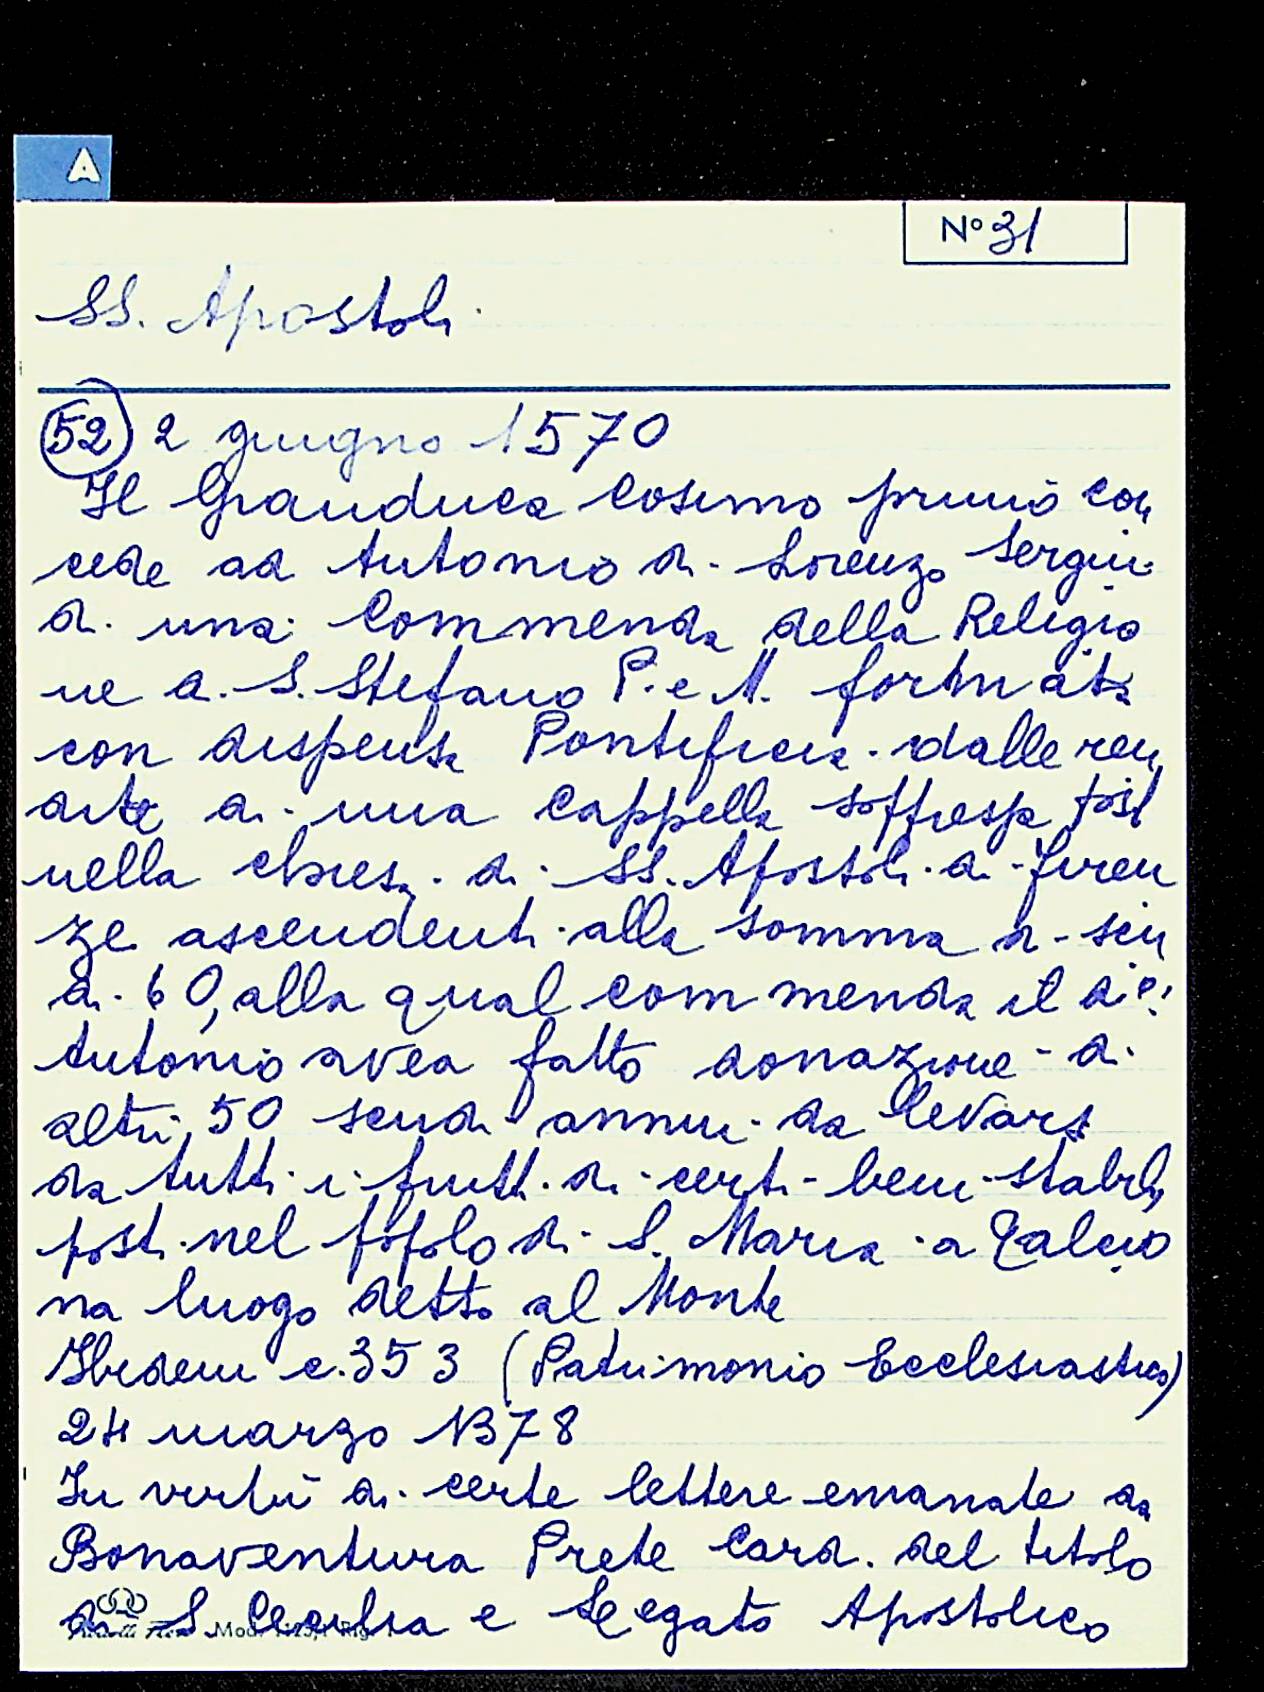 A
N° 31
SS. Apostoli
52 2 giugno 1570
Il Granduca Cosimo primo con
cede ad Antonio di Lorenzo Sergui
di una Commenda della Religio
ne di S. Stefano P. e M. formata
con dispensa Pontificia dalle ren
dite di una cappella soffressa
nella chiesa di SS. Apostoli di Firen
ze ascendenti alla somma di scu
di 60, alla qual commenda il d°
Antonio avea fatto donazione di
altri 50 scudi annui da levarsi
da tutti i frutti di certi beni stabili
posti nel popolo di S. Maria a Falcio
na luogo detto al Monte
Ibidem c. 353 (Patrimonio Ecclesiastico)
24 marzo 1378
In virtù di certe lettere emanate da
Bonaventura Prete Card. del titolo
di S. Cecilia e Legato Apostolico